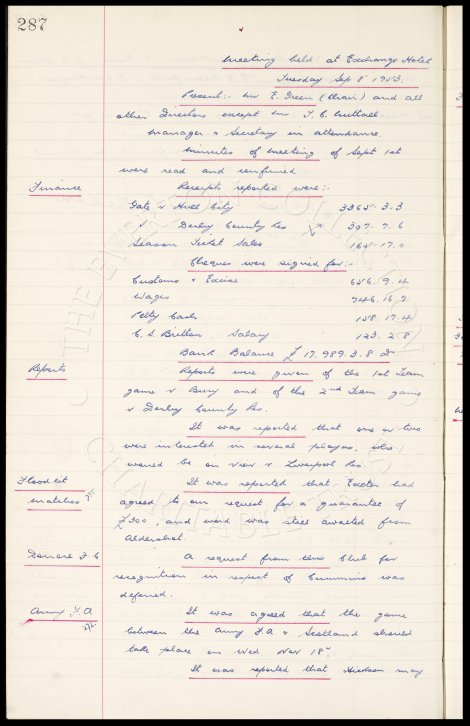 287
Meeting held at Exchange Hotel
Tuesday Sep 8 1953.
Present:- Mr E. Green (Chair) and all
other Directors except Mr T. C. Nuttall.
Manager & Secretary in attendance.
Minutes of meeting of Sept 1st
were read and confirmed
Finance Receipts reported were:-
Gate v Hull City 3365. 3. 3
v Derby County Res 307. 7. 6
Season Ticket Sales 165. 17. 0
Cheques were signed for:-
Customs & Excise 656. 9. 4
Wages 746. 16. 2
Petty Cash 158. 17. 4
C. S. Britton, Salary 123. 2. 8
Bank Balance £ 17,989. 3. 8 Dr
Reports Reports were given of the 1st Team
game v Bury and of the 2nd Team game
v Derby County Res.
It was reported that one or two
were interested in several players, who
would be on view v Liverpool Res.
Floodlit It was reported that Exeter had
matches agreed to our request for a guarantee of
£300, and word was still awaited from
Aldershot
F.C A request from this Club for
recognition in respect of Cummins was
deferred.
Army F.A It was agreed that the game
between the Army FA & Scotland should
take place on Wed Nov 18th
It was reported that may
THE EVERTON COLLECTION
CHARITABLE